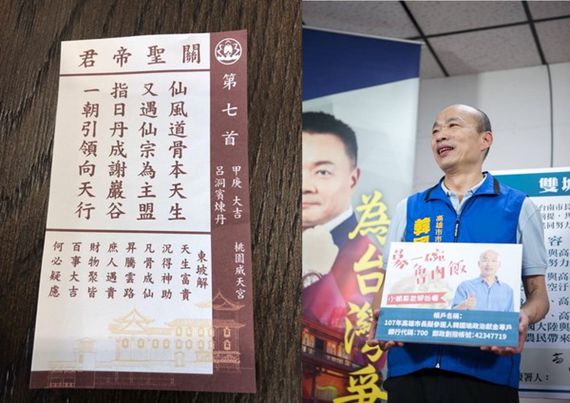 關聖帝君
第七首
甲庚 大吉
呂洞賓煉丹
桃園威天宮
仙風道骨本天生
又遇仙宗為主盟
指日丹成謝巖谷
一朝引領向天行
東坡解
天生富貴
況得神助
凡骨成仙
昇騰雲路
庶人遇貴
財物聚皆
百事大吉
何必疑慮
為台灣爭
高雄市市
韓國
夢一碗
魯肉飯
小額募款郵台語
帳戶名稱：
107年高雄市長擬參選人韓國瑜政治獻金專戶
銀行代碼:700 郵政劃撥帳號:42347719
雙城
台南市長
容
與高
努力
大陸與高
農民帶來
署人：